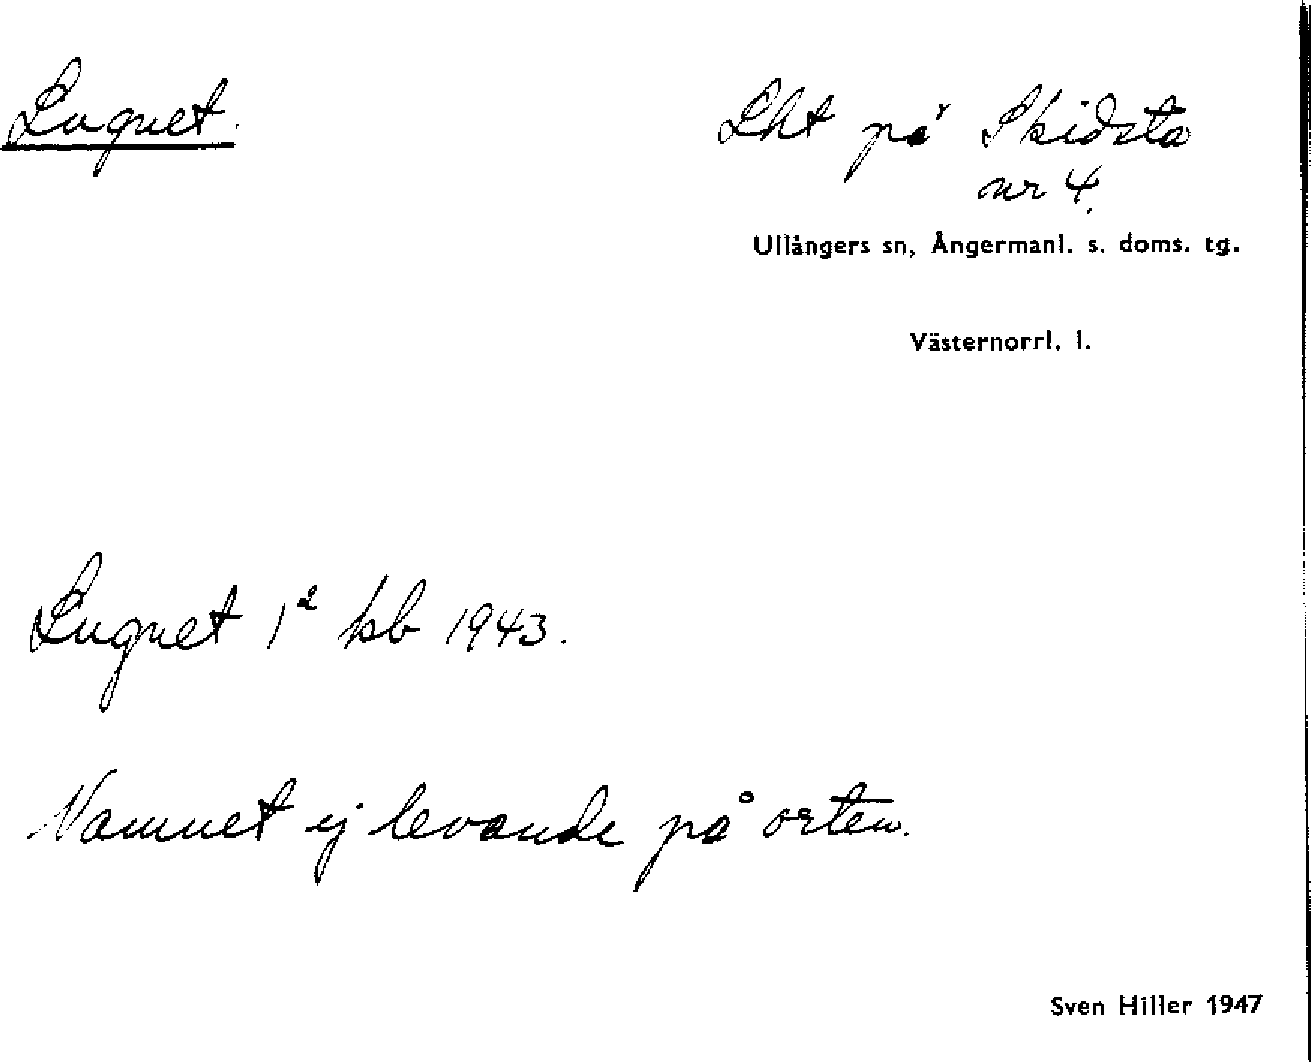 Lugnet.
Lht på Skidsta
nr 4.
Ullångers sn, Ångermanl. s. doms. tg.
Västernorrl. l.
Lugnet 1ª kb 1943.
Namnet ej levande på orten.
Sven Hiller 1947